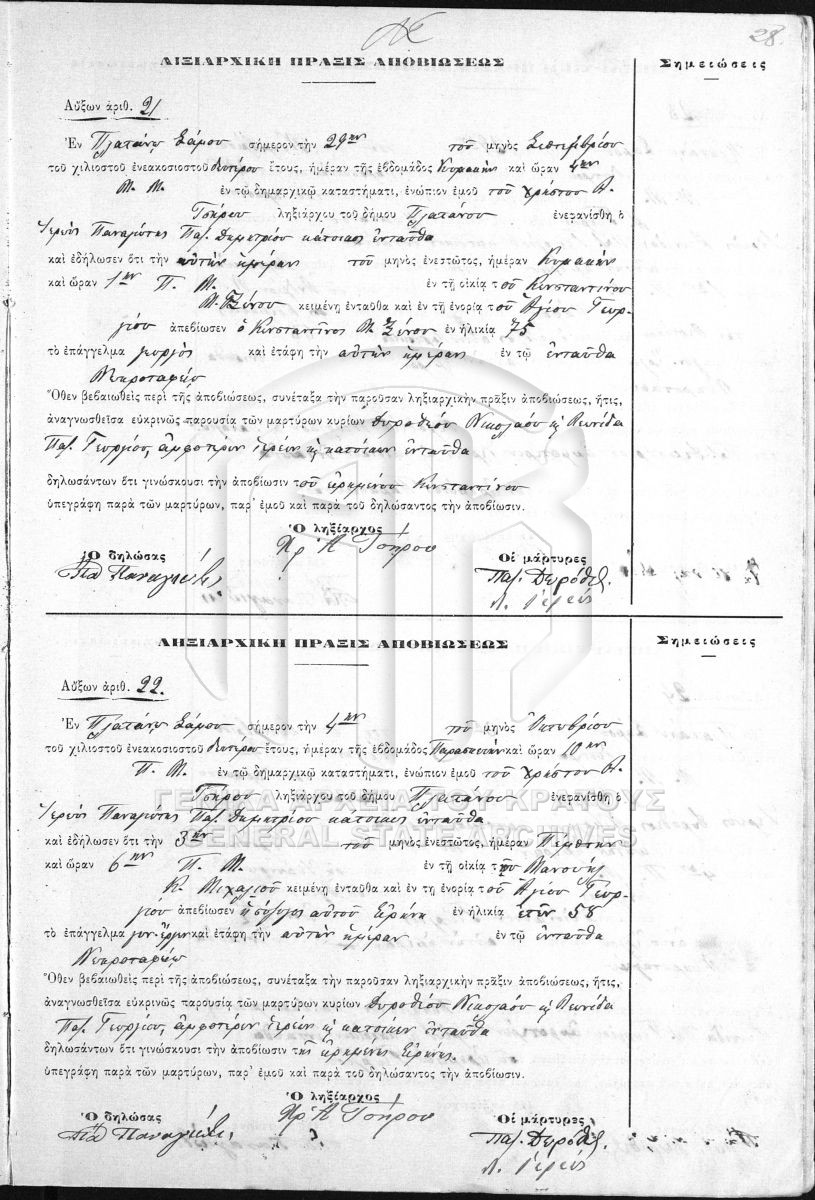 28.
ΛΗΞΙΑΡΧΙΚΗ ΠΡΑΞΙΣ ΑΠΟΒΙΩΣΕΩΣ
Σημειώσεις
Αὔξων ἀριθ. 21
Ἐν Πλατάνῳ Σάμου σήμερον τὴν 29ην τοῦ μηνὸς Σεπτεμβρίου
τοῦ χιλιοστοῦ ἐνεακοσιοστοῦ δευτέρου ἔτους, ἡμέραν τῆς ἑβδομάδος Κυριακὴν καὶ ὥραν 4ην
Μ. Μ. ἐν τῷ δημαρχικῷ καταστήματι, ἐνώπιον ἐμοῦ τοῦ Χρήστου Α.
Τσήρου ληξιάρχου τοῦ δήμου Πλατάνου ἐνεφανίσθη ὁ
Ἱερεὺς Παναγιώτης Παπ. Δημητρίου κάτοικος ἐνταῦθα
καὶ ἐδήλωσεν ὅτι τὴν αὐτὴν ἡμέραν τοῦ μηνὸς ἐνεστῶτος, ἡμέραν Κυριακὴν
καὶ ὥραν 1ην Π. Μ. ἐν τῇ οἰκίᾳ τοῦ Κωνσταντίνου
Μ. Ξένου κειμένῃ ἐνταῦθα καὶ ἐν τῇ ἐνορίᾳ τοῦ Ἁγίου Γεωρ-
γίου ἀπεβίωσεν ὁ Κωνσταντῖνος Μ. Ξένου ἐν ἡλικίᾳ 75
τὸ ἐπάγγελμα γεωργὸς καὶ ἐτάφη τὴν αὐτὴν ἡμέραν ἐν τῷ ἐνταῦθα
Νεκροταφείῳ
Ὅθεν βεβαιωθεὶς περὶ τῆς ἀποβιώσεως, συνέταξα τὴν παροῦσαν ληξιαρχικὴν πρᾶξιν ἀποβιώσεως, ἥτις,
ἀναγνωσθεῖσα εὐκρινῶς παρουσίᾳ τῶν μαρτύρων κυρίων Δωροθέου Νικολάου κ Λεωνίδα
Παπ. Γεωργίου, ἀμφοτέρων ἱερέων κ κατοίκων ἐνταῦθα
δηλωσάντων ὅτι γινώσκουσι τὴν ἀποβίωσιν τοῦ εἰρημένου Κωνσταντίνου
ὑπεγράφη παρὰ τῶν μαρτύρων, παρ' ἐμοῦ καὶ παρὰ τοῦ δηλώσαντος τὴν ἀποβίωσιν.
Ὁ ληξίαρχος
Χρ Α Τσήρου
Ὁ δηλώσας
Οἱ μάρτυρες
Παπ. Δωρόθε.
Λ. Ἱερεύς
ΛΗΞΙΑΡΧΙΚΗ ΠΡΑΞΙΣ ΑΠΟΒΙΩΣΕΩΣ
Σημειώσεις
Αὔξων ἀριθ. 22.
Ἐν Πλατάνῳ Σάμου σήμερον τὴν 4ην τοῦ μηνὸς Ὀκτωβρίου
τοῦ χιλιοστοῦ ἐνεακοσιοστοῦ δευτέρου ἔτους, ἡμέραν τῆς ἑβδομάδος Παρασκευὴν καὶ ὥραν 10ην
Π. Μ. ἐν τῷ δημαρχικῷ καταστήματι, ἐνώπιον ἐμοῦ τοῦ Χρήστου Α.
Τσήρου ληξιάρχου τοῦ δήμου Πλατάνου ἐνεφανίσθη ὁ
Ἱερεὺς Παναγιώτης Παπ. Δημητρίου κάτοικος ἐνταῦθα
ΓΕΝΙΚΑ ΑΡΧΕΙΑ ΤΟΥ ΚΡΑΤΟΥΣ
GENERAL STATE ARCHIVES
καὶ ἐδήλωσεν ὅτι τὴν 3ην τοῦ μηνὸς ἐνεστῶτος, ἡμέραν Πέμπτην
καὶ ὥραν 6ην Π. Μ. ἐν τῇ οἰκίᾳ τοῦ Μανουὴλ
Κ. Μιχαλιοῦ κειμένῃ ἐνταῦθα καὶ ἐν τῇ ἐνορίᾳ τοῦ Ἁγίου Γεωρ-
γίου ἀπεβίωσεν ἡ σύζυγος αὐτοῦ Εἰρήνη ἐν ἡλικίᾳ ἐτῶν 58
τὸ ἐπάγγελμα καὶ ἐτάφη τὴν αὐτὴν ἡμέραν ἐν τῷ ἐνταῦθα
Νεκροταφείῳ
Ὅθεν βεβαιωθεὶς περὶ τῆς ἀποβιώσεως, συνέταξα τὴν παροῦσαν ληξιαρχικὴν πρᾶξιν ἀποβιώσεως, ἥτις,
ἀναγνωσθεῖσα εὐκρινῶς παρουσίᾳ τῶν μαρτύρων κυρίων Δωροθέου Νικολάου κ Λεωνίδα
Παπ. Γεωργίου, ἀμφοτέρων ἱερέων κ κατοίκων ἐνταῦθα
δηλωσάντων ὅτι γινώσκουσι τὴν ἀποβίωσιν τῆς εἰρημένης Εἰρήνης.
ὑπεγράφη παρὰ τῶν μαρτύρων, παρ' ἐμοῦ καὶ παρὰ τοῦ δηλώσαντος τὴν ἀποβίωσιν.
Ὁ ληξίαρχος
Χρ Α Τσήρου
Ὁ δηλώσας
Οἱ μάρτυρες
Παπ. Δωρόθε.
Λ. Ἱερεύς